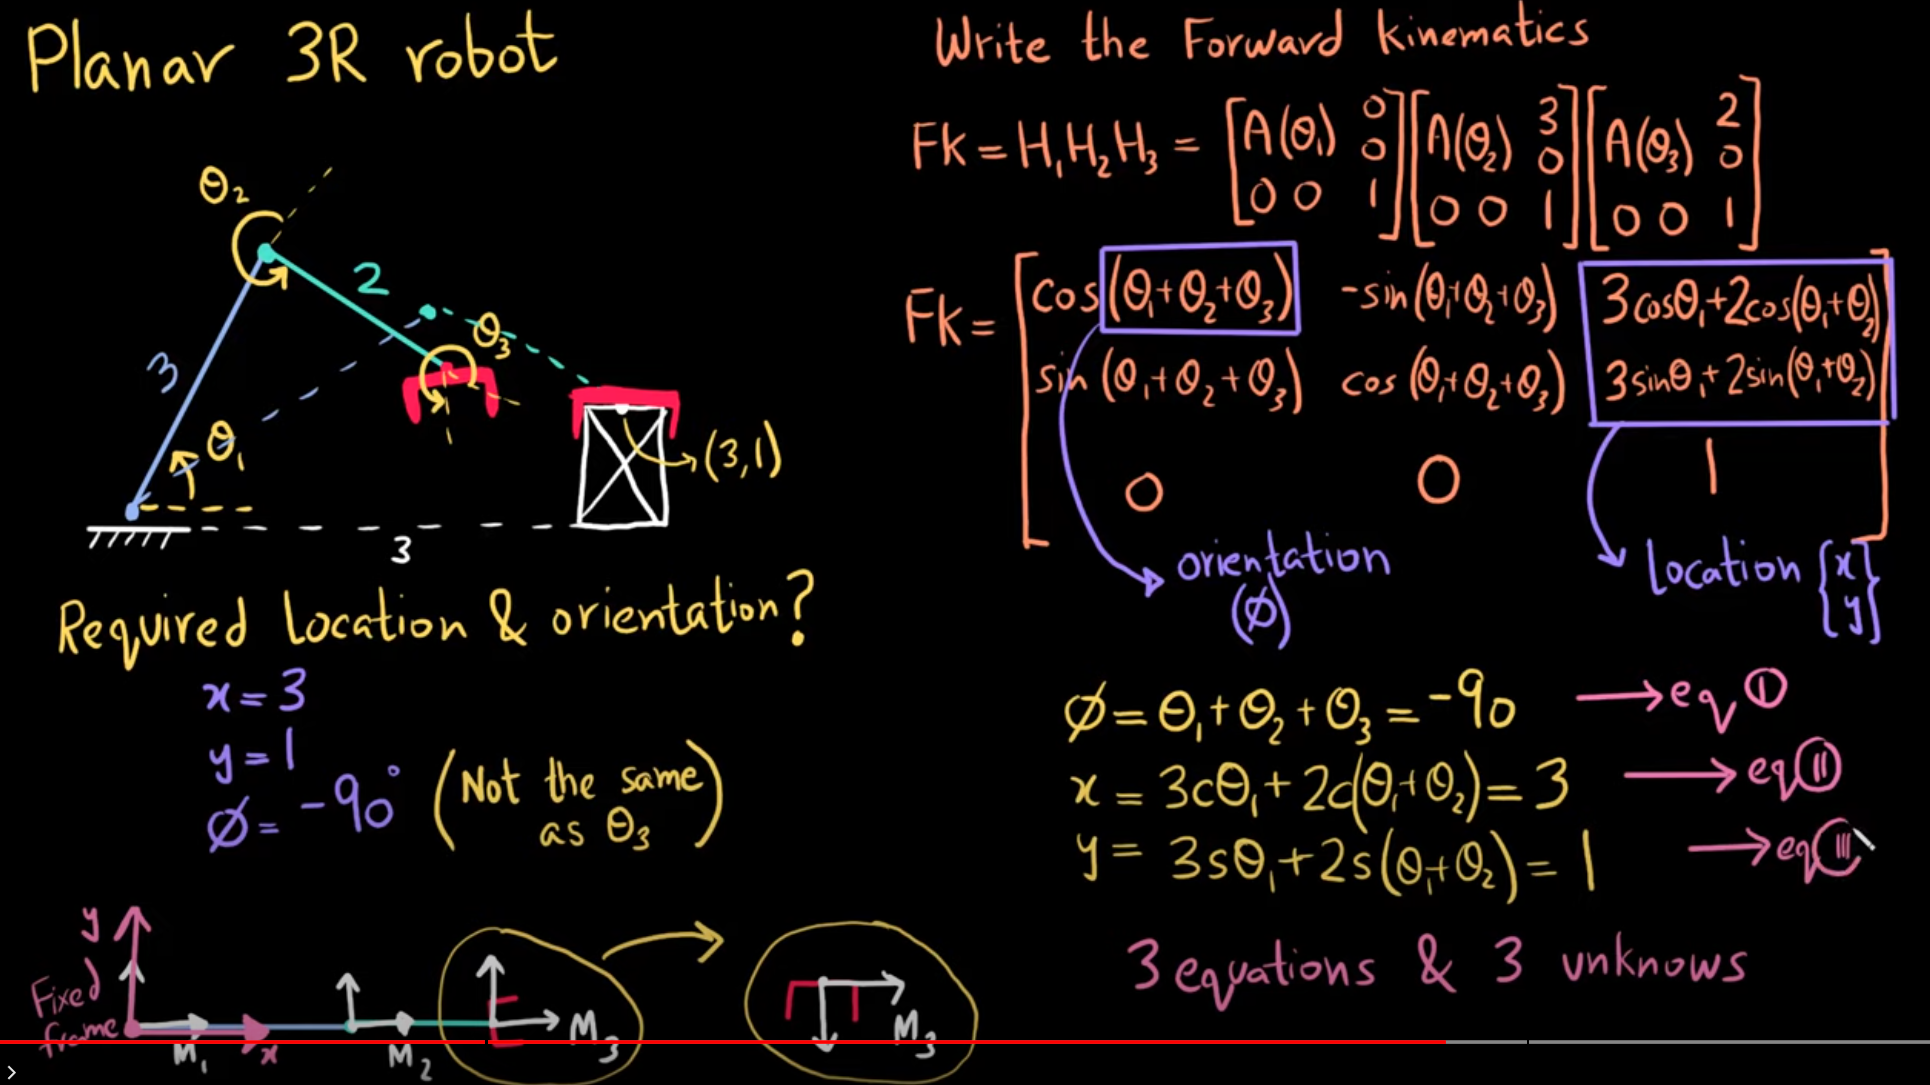 Planar 3R robot
θ₂
2
3
θ₃
θ₁
(3,1)
3
Required Location & orientation?
x = 3
y = 1
Ø = -90° (Not the same as θ₃)
y
Fixed frame
M₁
x
M₂
M₃
M₃
Write the Forward kinematics
Fk = H₁H₂H₃ = [A(θ₁) 0 0 0 0 1] [A(θ₂) 3 0 0 0 1] [A(θ₃) 2 0 0 0 1]
Fk = [cos(θ₁+θ₂+θ₃) -sin(θ₁+θ₂+θ₃) 3cosθ₁+2cos(θ₁+θ₂)
sin(θ₁+θ₂+θ₃) cos(θ₁+θ₂+θ₃) 3sinθ₁+2sin(θ₁+θ₂)
0 0 1]
orientation (Ø)
location {x y}
Ø = θ₁+θ₂+θ₃ = -90 → eq I
x = 3cθ₁+2c(θ₁+θ₂) = 3 → eq II
y = 3sθ₁+2s(θ₁+θ₂) = 1 → eq III
3 equations & 3 unknows